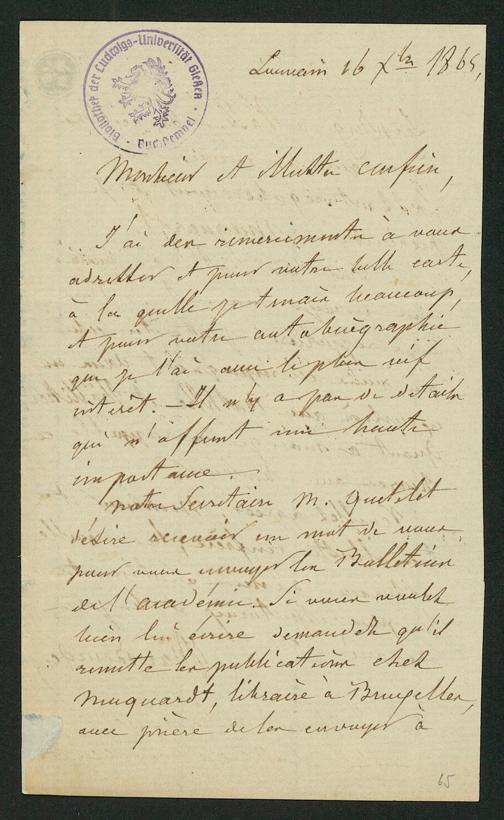 Bibliothek der Ludwigs-Universität Gießen
Louvain 16 Xbre 1865,
Monsieur et illustre confrère,
J'ai des remerciments à vous
adresser et pour votre belle carte,
à la quelle je tenais beaucoup,
et pour votre autobiographie
que je lai avec le plus vif
intérêt. – Il n'y a pas de détails
qui n'offrent une haute
importance.
Notre Secrétaire M. Quetelet
désire recevoir un mot de vous
pour vous envoyer les Bulletins
de l'académie. Si vous voulez
bien lui écrire demandez qu'il
remette les publications chez
Muquardt, libraire à Bruxelles,
avec prière de les envoyer à
65